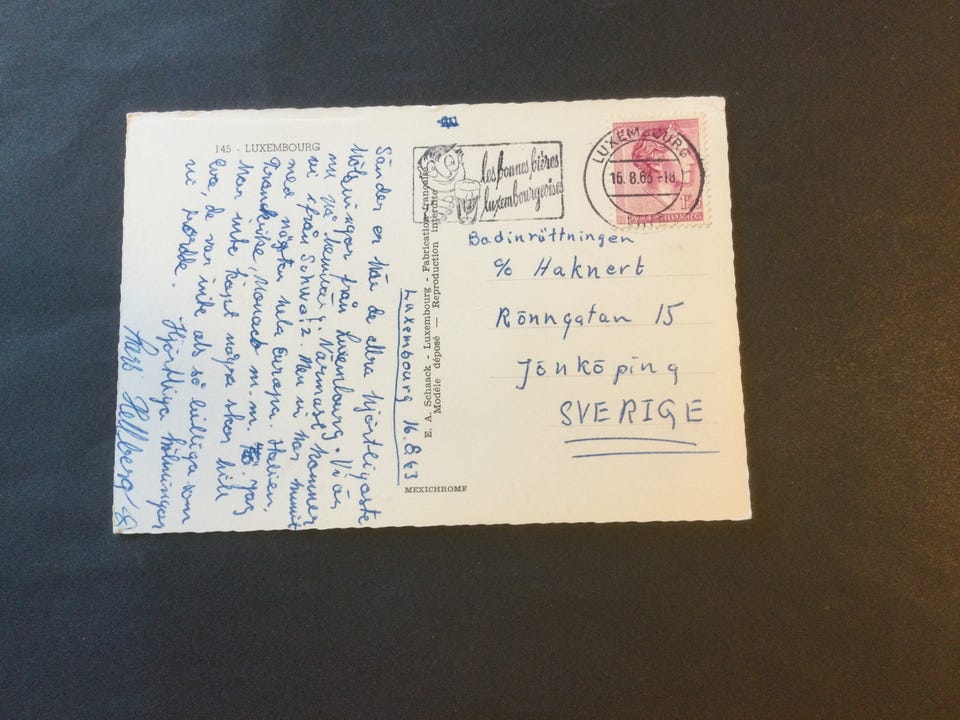 145 - LUXEMBOURG
Luxembourg 16.8.63
Sänder er här de allra hjärtligaste
hälsningar från Luxembourg. Vi är
nu på hemväg. Närmast kommer
vi ifrån Schweiz. Men vi har hunnit
med nästan hela Europa. Italien,
Frankrike, Monaco m.m. Jag
har inte köpt några skor till
Eva, de var inte als så billiga som
ni trodde.
Hjärtliga hälsningar
Hellberg
E. A. Schaack - Luxembourg - Fabrication française
Modèle déposé — Reproduction interdite
MEXICHROME
les bonnes bières
luxembourgeoises
LUXEMBOURG
16.8.63 -18
LUXEMBOURG
Badinrättningen
c/o Haknert
Rönngatan 15
Jönköping
SVERIGE